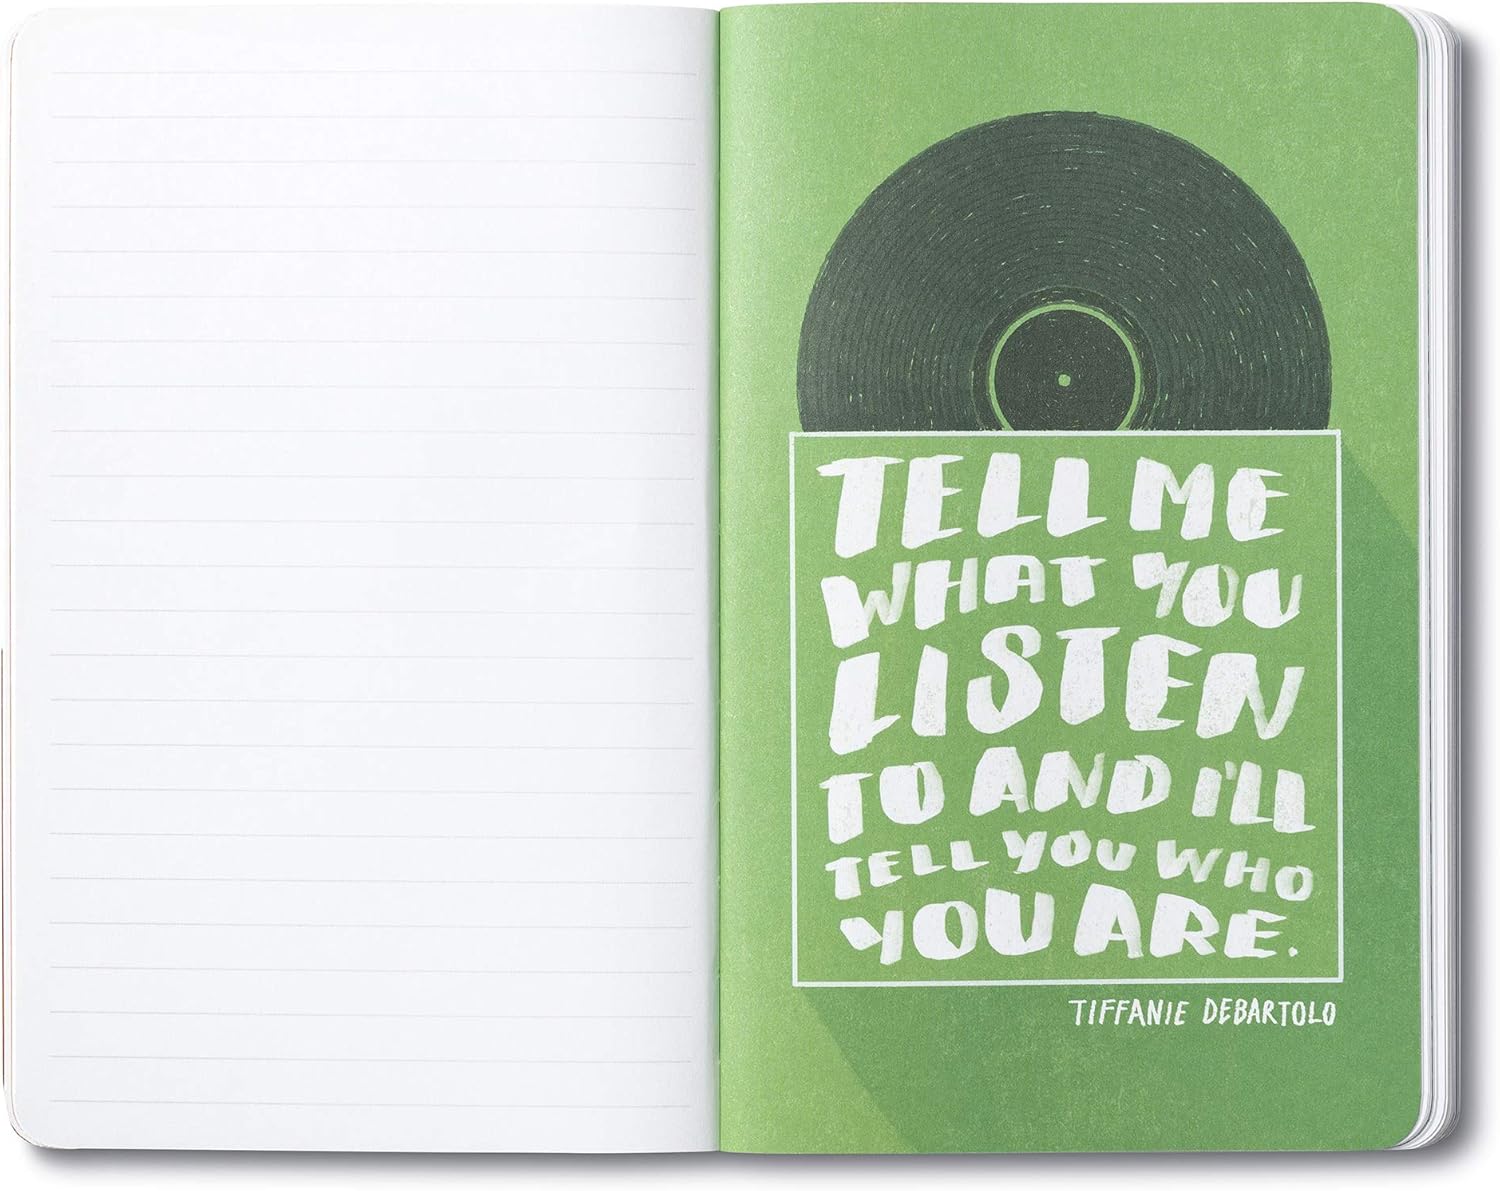 TELL ME
WHAT YOU
LISTEN
TO AND I'LL
TELL YOU WHO
YOU ARE.
TIFFANIE DEBARTOLO